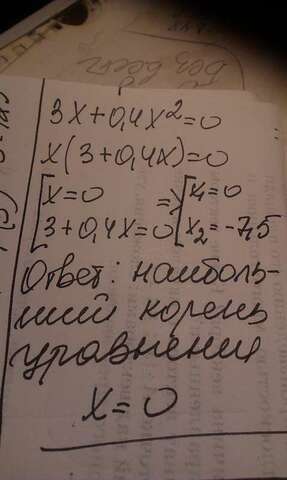 без всех
3x+0,4x²=0
x(3+0,4x)=0
[x=0 => [x₁=0
3+0,4x=0 x₂=-7,5
Ответ: наиболь-
ший корень
уравнения
x=0